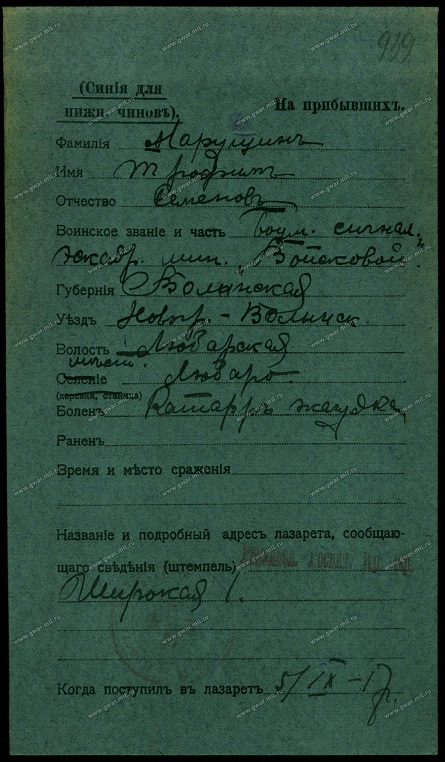 919
(Синія для
нижн. чиновъ).
На прибывшихъ.
Фамилія Марущинъ
Имя Трофимъ
Отчество Семеновъ
Воинское званіе и часть сигнал.
эскадр. мин. „Войсковой"
Губернія Волынская
Уѣздъ Новгр.-Волынск.
Волость Любарская
мѣст.
Селеніе Любаръ.
(деревня, станица)
Боленъ Катарръ желудка
Раненъ
Время и мѣсто сраженія
Названіе и подробный адресъ лазарета, сообщаю-
щаго свѣдѣнія (штемпель)
Широкая 1.
Когда поступилъ въ лазаретъ 5/IX-17г.
www.gwar.mil.ru